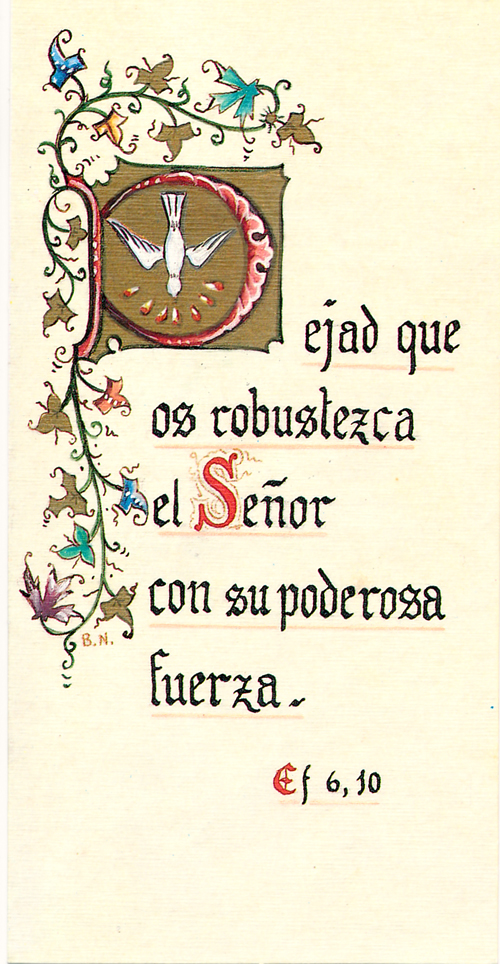 Dejad que
os robustezca
el Señor
con su poderosa
fuerza.
B.N.
Ef 6,10